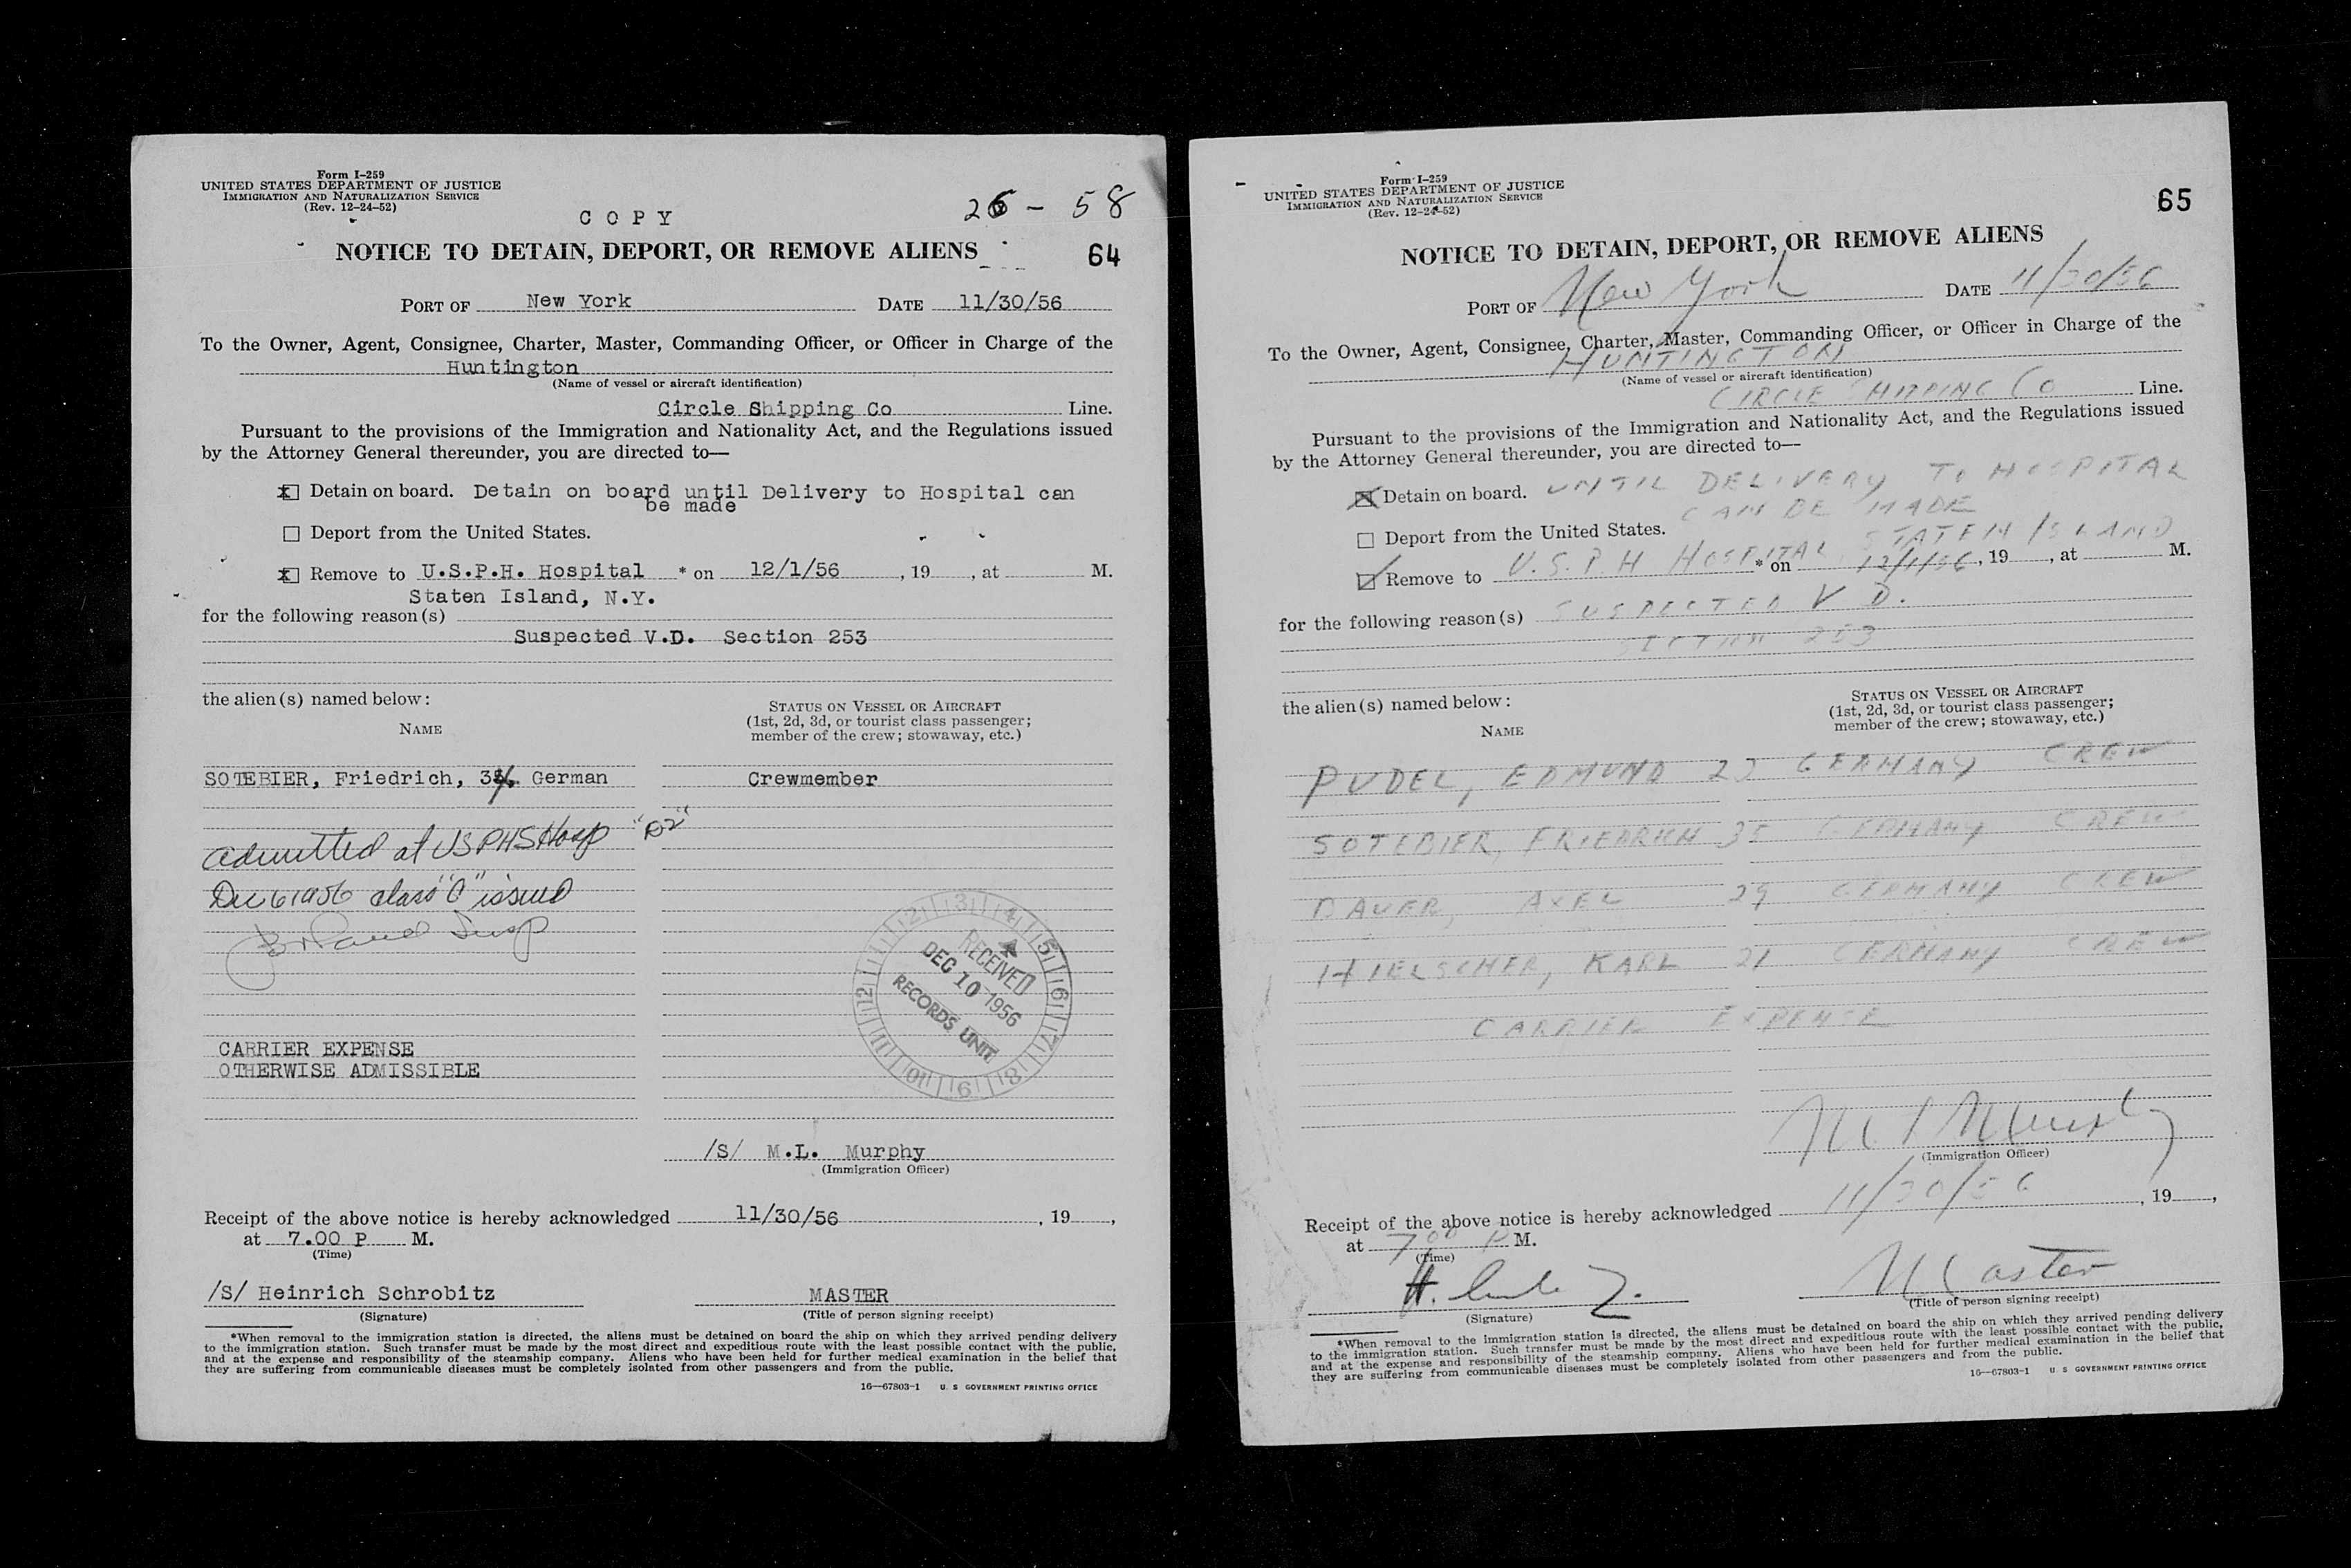 Form I-259
UNITED STATES DEPARTMENT OF JUSTICE
IMMIGRATION AND NATURALIZATION SERVICE
(Rev. 12-24-52)
COPY
26 - 58
NOTICE TO DETAIN, DEPORT, OR REMOVE ALIENS
64
PORT OF New York DATE 11/30/56
To the Owner, Agent, Consignee, Charter, Master, Commanding Officer, or Officer in Charge of the
Huntington
(Name of vessel or aircraft identification)
Circle Shipping Co Line.
Pursuant to the provisions of the Immigration and Nationality Act, and the Regulations issued
by the Attorney General thereunder, you are directed to—
x Detain on board. Detain on board until Delivery to Hospital can
be made
Deport from the United States.
x Remove to U.S.P.H. Hospital * on 12/1/56, 19 , at M.
Staten Island, N.Y.
for the following reason(s)
Suspected V.D. Section 253
the alien(s) named below:
STATUS ON VESSEL OR AIRCRAFT
(1st, 2d, 3d, or tourist class passenger;
member of the crew; stowaway, etc.)
NAME
SOTEBIER, Friedrich, German Crewmember
admitted at USPHS Hosp
Dec 6 1956 class "C" issued
Insp
RECEIVED
DEC 10 1956
RECORDS UNIT
CARRIER EXPENSE
OTHERWISE ADMISSIBLE
/S/ M.L. Murphy
(Immigration Officer)
Receipt of the above notice is hereby acknowledged 11/30/56, 19 ,
at 7.00 P M.
(Time)
/S/ Heinrich Schrobitz MASTER
(Signature) (Title of person signing receipt)
*When removal to the immigration station is directed, the aliens must be detained on board the ship on which they arrived pending delivery
to the immigration station. Such transfer must be made by the most direct and expeditious route with the least possible contact with the public,
and at the expense and responsibility of the steamship company. Aliens who have been held for further medical examination in the belief that
they are suffering from communicable diseases must be completely isolated from other passengers and from the public.
16—67803-1 U. S GOVERNMENT PRINTING OFFICE
Form I-259
UNITED STATES DEPARTMENT OF JUSTICE
IMMIGRATION AND NATURALIZATION SERVICE
(Rev. 12-24-52)
65
NOTICE TO DETAIN, DEPORT, OR REMOVE ALIENS
PORT OF New York DATE 11/30/56
To the Owner, Agent, Consignee, Charter, Master, Commanding Officer, or Officer in Charge of the
HUNTINGTON
(Name of vessel or aircraft identification)
CIRCLE SHIPPING CO Line.
Pursuant to the provisions of the Immigration and Nationality Act, and the Regulations issued
by the Attorney General thereunder, you are directed to—
Detain on board. UNTIL DELIVERY TO HOSPITAL
CAN BE MADE
Deport from the United States.
STATEN ISLAND
Remove to U.S.P.H HOSPITAL * on 12/1/56, 19 , at M.
for the following reason(s) SUSPECTED V D.
SECTION 253
the alien(s) named below:
STATUS ON VESSEL OR AIRCRAFT
(1st, 2d, 3d, or tourist class passenger;
member of the crew; stowaway, etc.)
NAME
PUDEL, EDMUND GERMANY CREW
SOTEBIER, FRIEDRICH 35 GERMANY CREW
BAUER, AXEL 29 GERMANY CREW
HIELSCHER, KARL 21 GERMANY CREW
CARRIER EXPENSE
M L Murphy
(Immigration Officer)
Receipt of the above notice is hereby acknowledged 11/30/56, 19 ,
at 7 00 P M.
(Time)
H. Master
(Signature) (Title of person signing receipt)
*When removal to the immigration station is directed, the aliens must be detained on board the ship on which they arrived pending delivery
to the immigration station. Such transfer must be made by the most direct and expeditious route with the least possible contact with the public,
and at the expense and responsibility of the steamship company. Aliens who have been held for further medical examination in the belief that
they are suffering from communicable diseases must be completely isolated from other passengers and from the public.
16—67803-1 U S GOVERNMENT PRINTING OFFICE